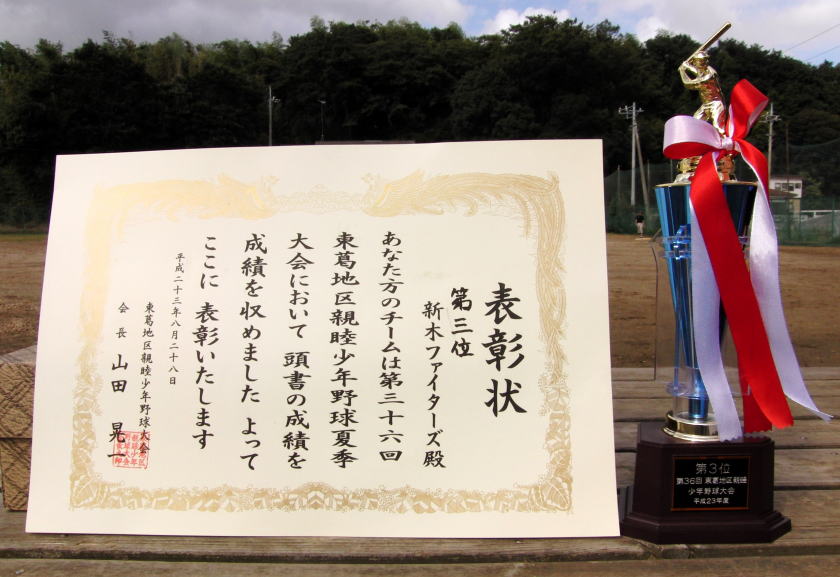 表彰状
第三位
新木ファイターズ殿
あなた方のチームは第三十六回
東葛地区親睦少年野球夏季
大会において 頭書の成績を
成績を収めました よって
ここに 表彰いたします
平成二十三年八月二十八日
東葛地区親睦少年野球大会
会長 山田 晃一
第3位
第36回 東葛地区親睦
少年野球大会
平成23年度